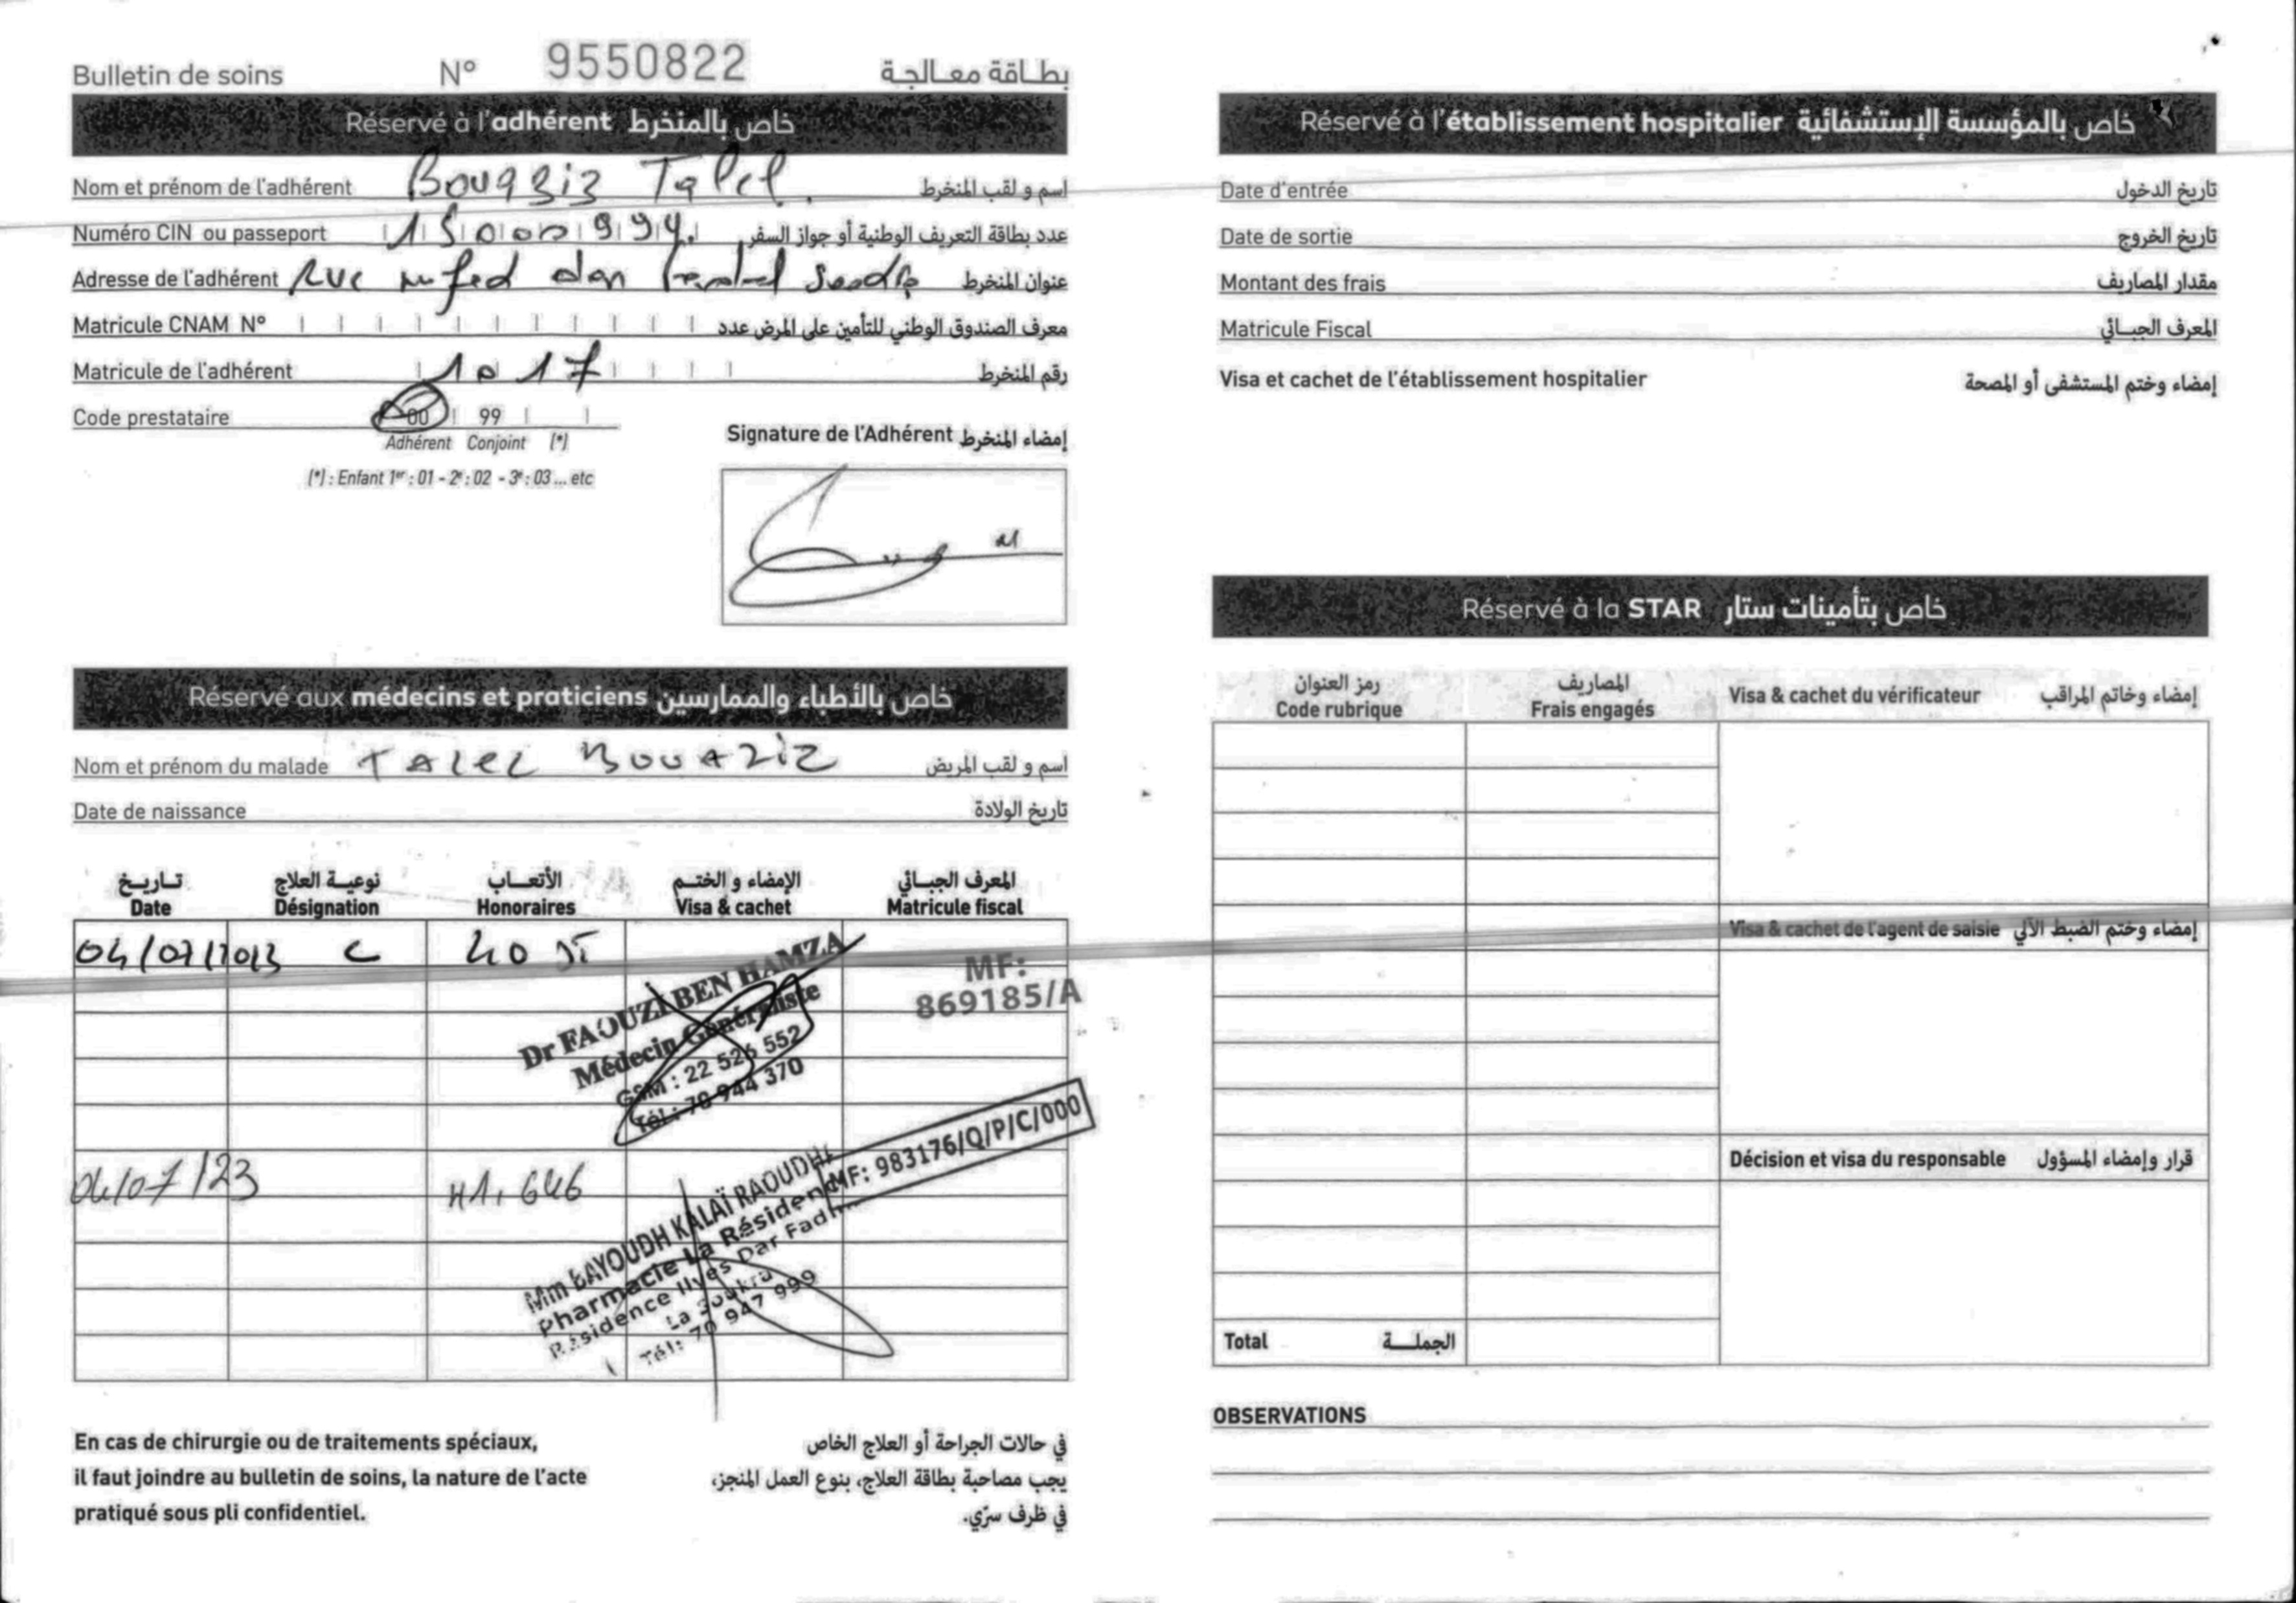 Bulletin de soins N° 9550822 بطاقة معالجة
Réservé à l'adhérent خاص بالمنخرط
Nom et prénom de l'adhérent Bouaziz Talel اسم و لقب المنخرط
Numéro CIN ou passeport عدد بطاقة التعريف الوطنية أو جواز السفر
Adresse de l'adhérent Rue عنوان المنخرط
Matricule CNAM N° معرف الصندوق الوطني للتأمين على المرض عدد
Matricule de l'adhérent 1017 رقم المنخرط
Code prestataire 00 99
Adhérent Conjoint (*)
(*) : Enfant 1er : 01 - 2e : 02 - 3e : 03 ... etc
Signature de l'Adhérent إمضاء المنخرط
Réservé aux médecins et praticiens خاص بالأطباء والممارسين
Nom et prénom du malade TALEL BOUAZIZ اسم و لقب المريض
Date de naissance تاريخ الولادة
تاريخ نوعية العلاج الأتعاب الإمضاء و الختم المعرف الجبائي
Date Désignation Honoraires Visa & cachet Matricule fiscal
04/07/2023 C 40 DT
Dr FAOUZI BEN HAMZA
Médecin Généraliste
GSM : 22 526 552
Tél : 70 944 370
MF:
869185/A
04/07/23
MF: 983176/Q/P/C/000
Mm BAYOUDH KALAÏ RAOUDHA
Pharmacie La Résidence
Résidence Ilyes Dar Fadhal
La Soukra
Tél: 70 947 999
En cas de chirurgie ou de traitements spéciaux,
il faut joindre au bulletin de soins, la nature de l'acte
pratiqué sous pli confidentiel.
في حالات الجراحة أو العلاج الخاص
يجب مصاحبة بطاقة العلاج، بنوع العمل المنجز،
في ظرف سرّي.
Réservé à l'établissement hospitalier خاص بالمؤسسة الإستشفائية
Date d'entrée تاريخ الدخول
Date de sortie تاريخ الخروج
Montant des frais مقدار المصاريف
Matricule Fiscal المعرف الجبائي
Visa et cachet de l'établissement hospitalier إمضاء وختم المستشفى أو المصحة
Réservé à la STAR خاص بتأمينات ستار
رمز العنوان المصاريف
Code rubrique Frais engagés Visa & cachet du vérificateur إمضاء وخاتم المراقب
Visa & cachet de l'agent de saisie إمضاء وختم الضبط الآلي
Décision et visa du responsable قرار وإمضاء المسؤول
Total الجملة
OBSERVATIONS